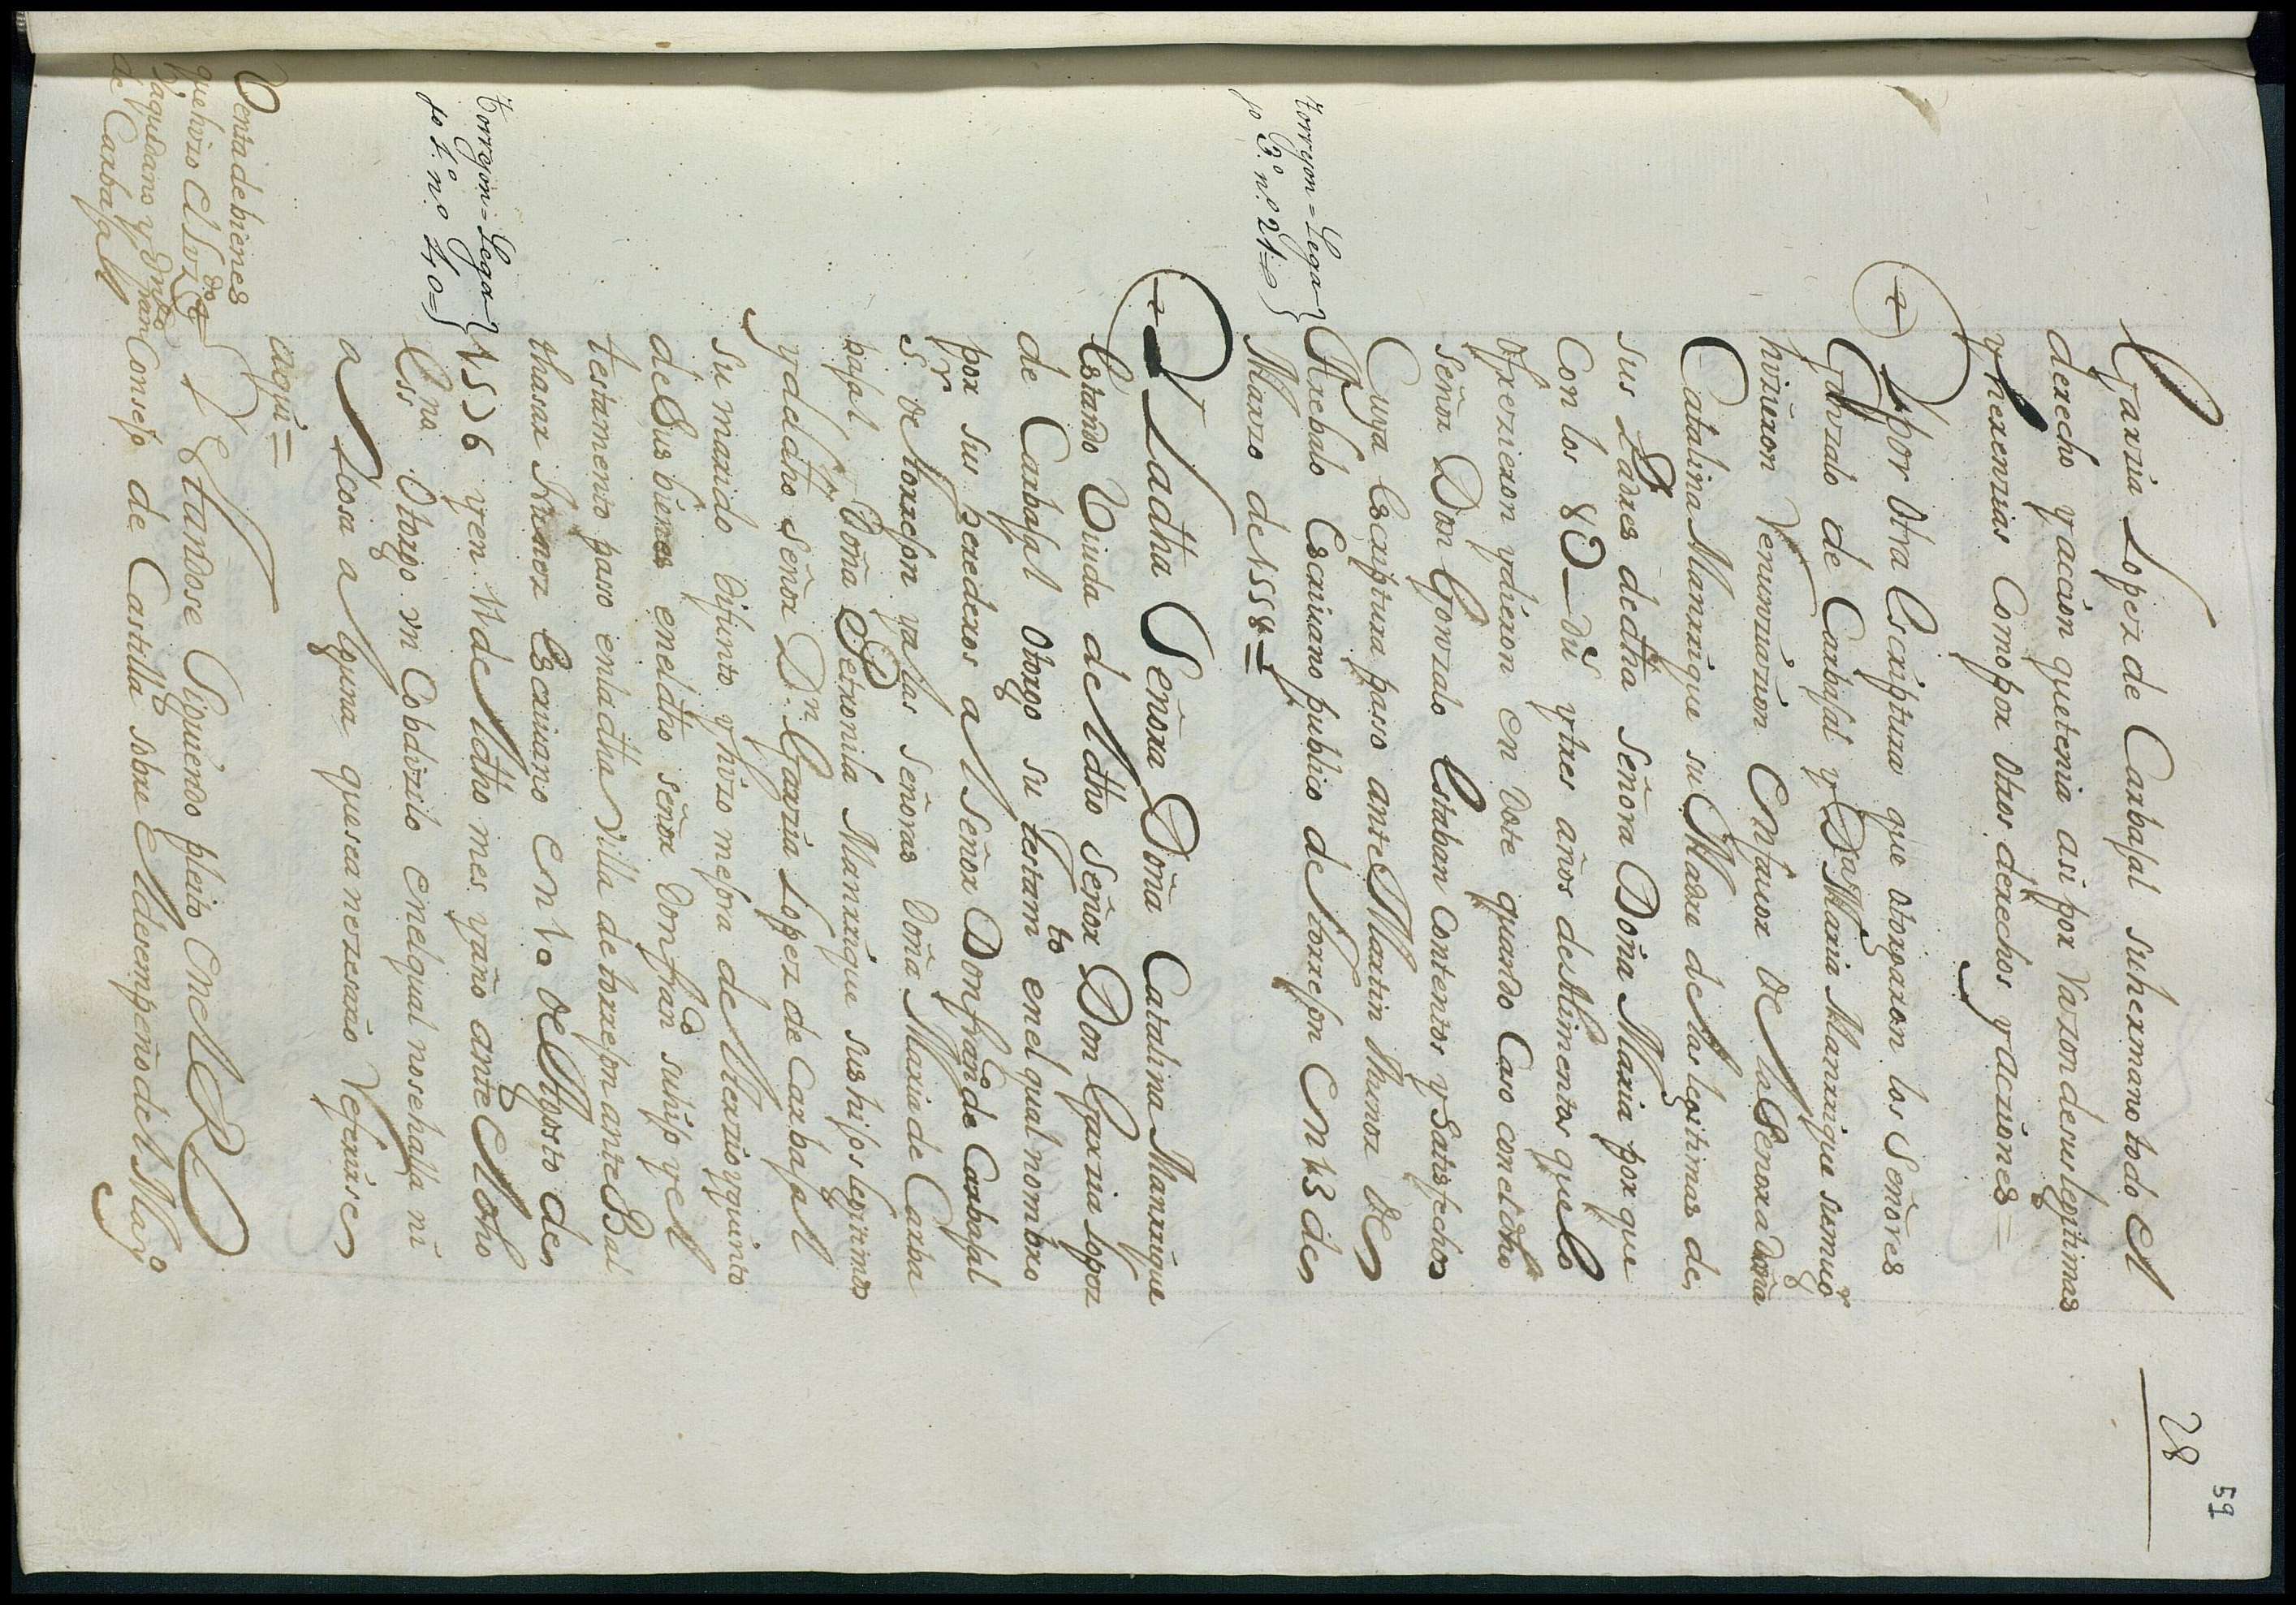 59
28
Garzia Lopez de Carbajal su hexmano todo el
derecho y accion que tenia asi por Razon de sus legitimas
y hexenzias Como por otros derechos y acziones =
Y por otra Escriptura que otorgaron los Señores
Gonzalo de Carbajal y Dª Maria Manrrique su mug.r
hizieron Renunziazion En fauor de la Señora Doña
Catalina Manrrique su Madre de las legitimas de
sus Padres de dha Señora Doña Maria por que
Con los 8O_ Ds y tres años de Alimentos que le
ofrezieron y dieron en dote quando Caso con el dho
señor Don Gonzalo Estaban Contentos y Satisfechos
Cuya Escriptura passo ante Martin Munoz de
Torrejon = Lega- } Arebalo Escriuano publico de torrejon En 13 de
jo 3º nº 21= } Marzo de 1558=
La dha Señora Doña Catalina Manrrique
Estando Viuda del dho Señor Don Garzia lopez
de Carbajal otorgo su testamto en el qual nombro
por sus herederos al Señor Don franco de Carbajal
Sr de torrejon y a las Señoras Doña Maria de Carba
bajal y Doña Petronila Manrrique sus hijos legitimos
y del dho Señor Dn Garzia Lopez de Carbajal
su marido difunto y hizo mejora de Terzio y quinto
de sus bienes en el dho señor Don franco su hijo y el
testamento paso en la dha Villa de torrejon ante Bal
thasar Ximenez Escriuano En 10 de Agosto de
Torrejon = Lega- } 1576 y en 11 del dho mes y año ante el dho
jo 1º nº 40= } Essna Otorgo vn Cobdizilo en el qual no se halla ni
al cosa alguna que sea nezesario Referirse
aqui =
Venta de bienes
que hizo el Lizdo
Baquedano y Dn franco
de Carbajal
Estandose Siguiendo pleito En el Rl
Consejo de Castilla sobre el desempeño del Maygo